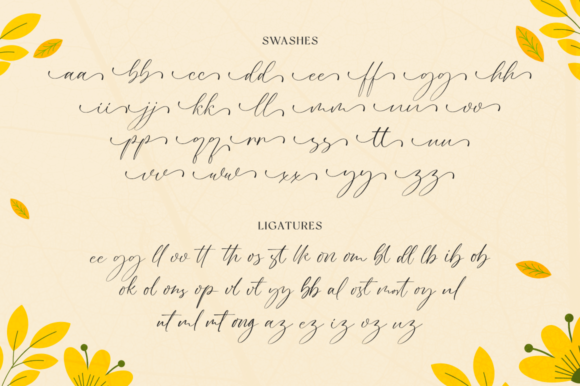 SWASHES
aa bb cc dd ee ff gg hh
ii jj kk ll mm nn oo
pp qq rr ss tt uu
vv ww xx yy zz
LIGATURES
ee gg ll oo tt th os st lk on om bl dl lb ib ob
ok ol ons op vl vt yy bb al ost mst oy ul
ut ml mt ong az ez iz oz uz